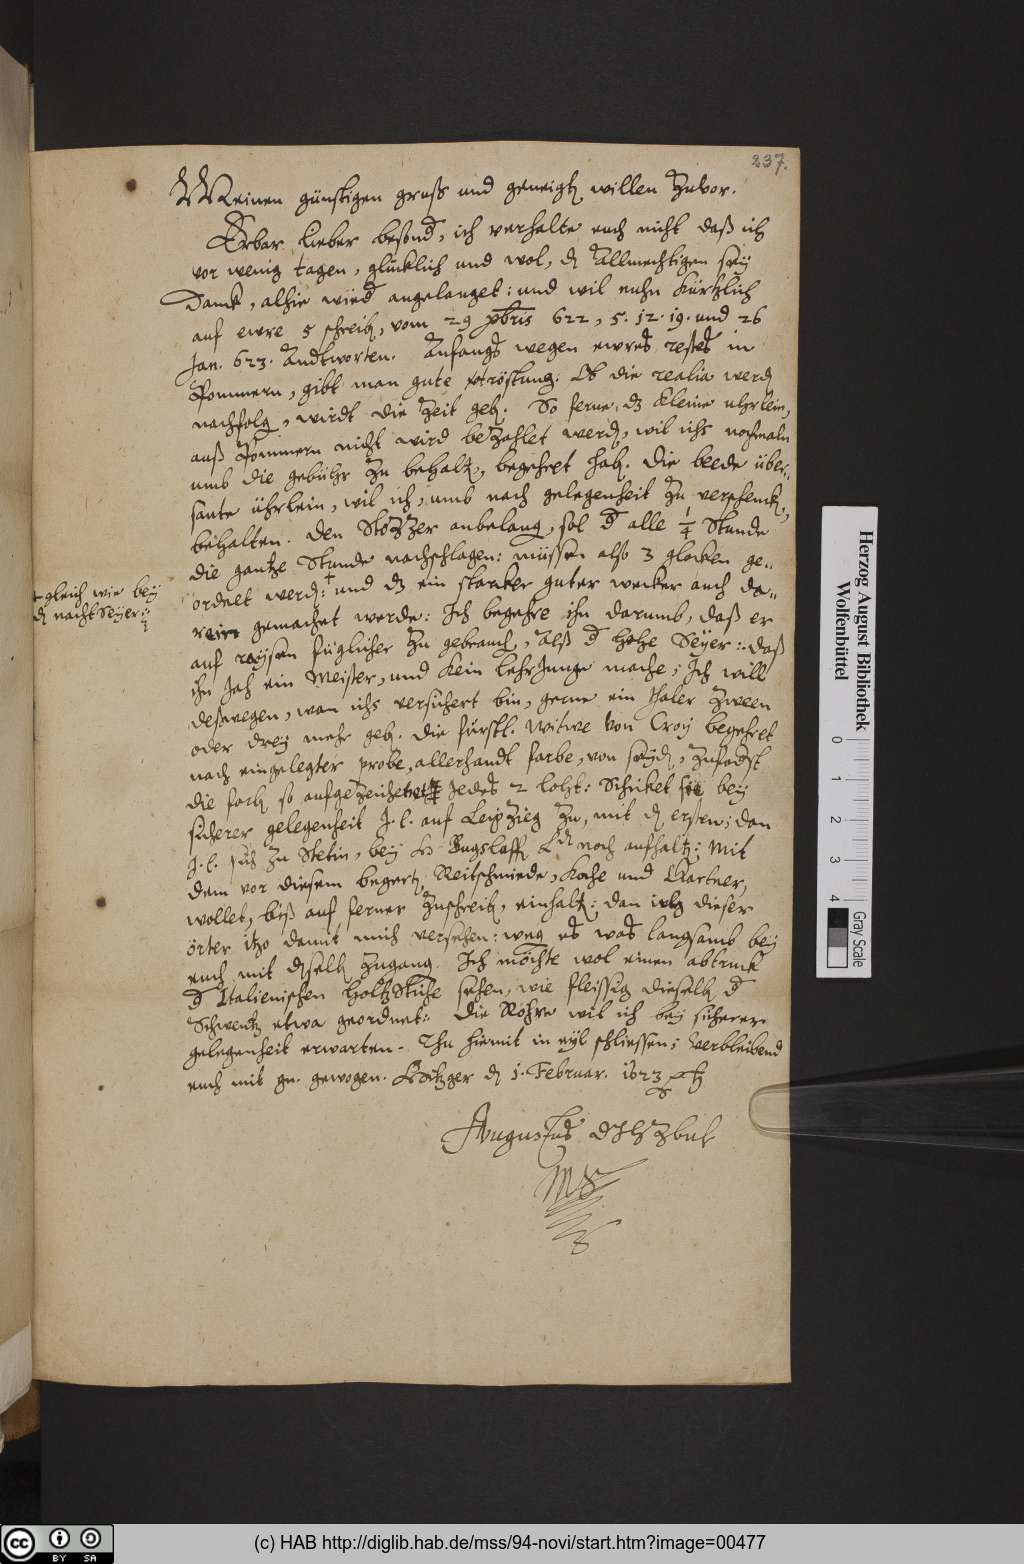 237.
Meinen günstigen gruß und geneigtẽ willen Zuvor.
Erbar lieber besond., ich verhalte euch nicht daß ich
vor wenig tagen, glücklich und wol, dẽ Allmechtigen sey
Danck, alhie wied angelanget: und wil euhn kürtzlich
auf ewre 5 schreibẽ, vom 29 xbris 622, 5. 12. 19. und 26
Jan. 623. Andtworten. Anfangs wegen ewres restes in
Pommern, gibt man gute vertröstung. Ob die realia werdẽ
nachfolgẽ, wirdt die Zeit gebẽ. So ferne, dz kleine uhrlein,
auß Pommern nicht wird bezahlet werdẽ, wil ichs nochmaln
umb die gebühr Zu behaltẽ, begehret habẽ. Die beede über-
sante ührlein, wil ich, umb nach gelegenheit Zu verschenckẽ,
behalten. Den StoZZer anbelangẽ, sol d alle 1/4 Stunde
die gantze Stunde nachschlagen: müssen also 3 glocken ge-
ordnet werdẽ: + und dz ein starcker guter wecker auch da-
rein gemachet werde: Ich begehre ihn darumb, daß er
+ gleich wie bey
dẽ nacht Seyer:
auf reysen füglicher Zu gebrauchẽ, Alß d hohe Seyer: daß
ihn Jah ein Meister, und kein lehrJunge mache; Ich will
deßwegen, wan ichs versichert bin, gerne ein thaler Zween
oder drey mehr gebẽ. Die fürstl. Witwe von Croy begehret
nach eingelegter probe, allerhandt farbe, von seydẽ,
die farbẽ so aufgezeichnet Jedes 2 loht: Schicket sie bey
sicherer gelegenheit J. l. auf Leipzieg Zu, mit dẽ ersten; dan
J. l. sich Zu Stetin, bey H Bugslaffẽ Ldẽ noch aufhaltẽ; Mit
dem vor diesem begertẽ Reitschmiede, Koche und Gartner,
wollet, biß auf ferner Zuschreibẽ, einhaltẽ: dan ich dieser
örter itzo damit mich versehen: es was langsamb bey
euch mit dselbẽ Zugang. Ich möchte wol einen abtruck
d Italienischen HoltzStühe sehen, wie fleissig dieselbẽ d
Schwentz etwa geordnet: Die Röhre wil ich bey sicherer
gelegenheit erwarten. Thu hiemit in eyl schliessen; Verbleibend
euch mit gn. gewogen. Hitzger dẽ 1. Februar. 1623
Augustus D J H Z B u L
Mp
Herzog August Bibliothek
Wolfenbüttel
0
1
2
3
4
Gray Scale
cc
BY
SA
(c) HAB http://diglib.hab.de/mss/94-novi/start.htm?image=00477